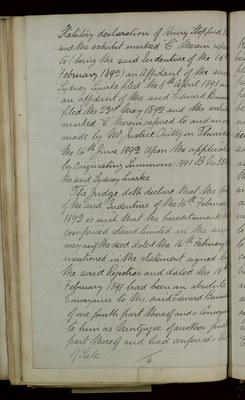 Statutory declaration of Henry Stafford
and the exhibit marked C therein refer
to (being the said Indenture of the 16th
February 1892) an Affidavit of the said
Sydney Clarke filed the 8th April 1891 and
an affidavit of the said Edward
filed the 23rd May 1892 and the exhibit
marked E therein referred to and an
made by Mr Justice Chitty on Thursday
the 16th June 1892 Upon the application
by Originating Summons 1891 B
the said Sydney Clarke
The Judge doth declare that the
of the said Indenture of the 16th February
1892 is such that the hereditaments
comprised stand limited in the same
way as if the deed dated the 16th February
mentioned in the statement signed by
the said Royston and dated the 18th
February 1891 had been an absolute
Conveyance to the said Edward
of one fourth part thereof and a Conveyance
to him as Mortgagee of another fourth
part thereof and had conferred a
of Sale